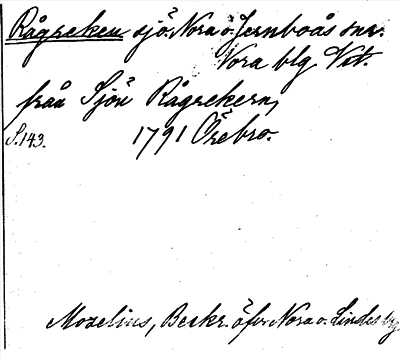 Rågreken sjö. Nora o. Jernboås snr.
Nora blg Vit.
från Sjön Rågrekern,
S.143. 1791 Örebro.
Mozelius, Beskr. öfv. Nora o. Lindes bg.